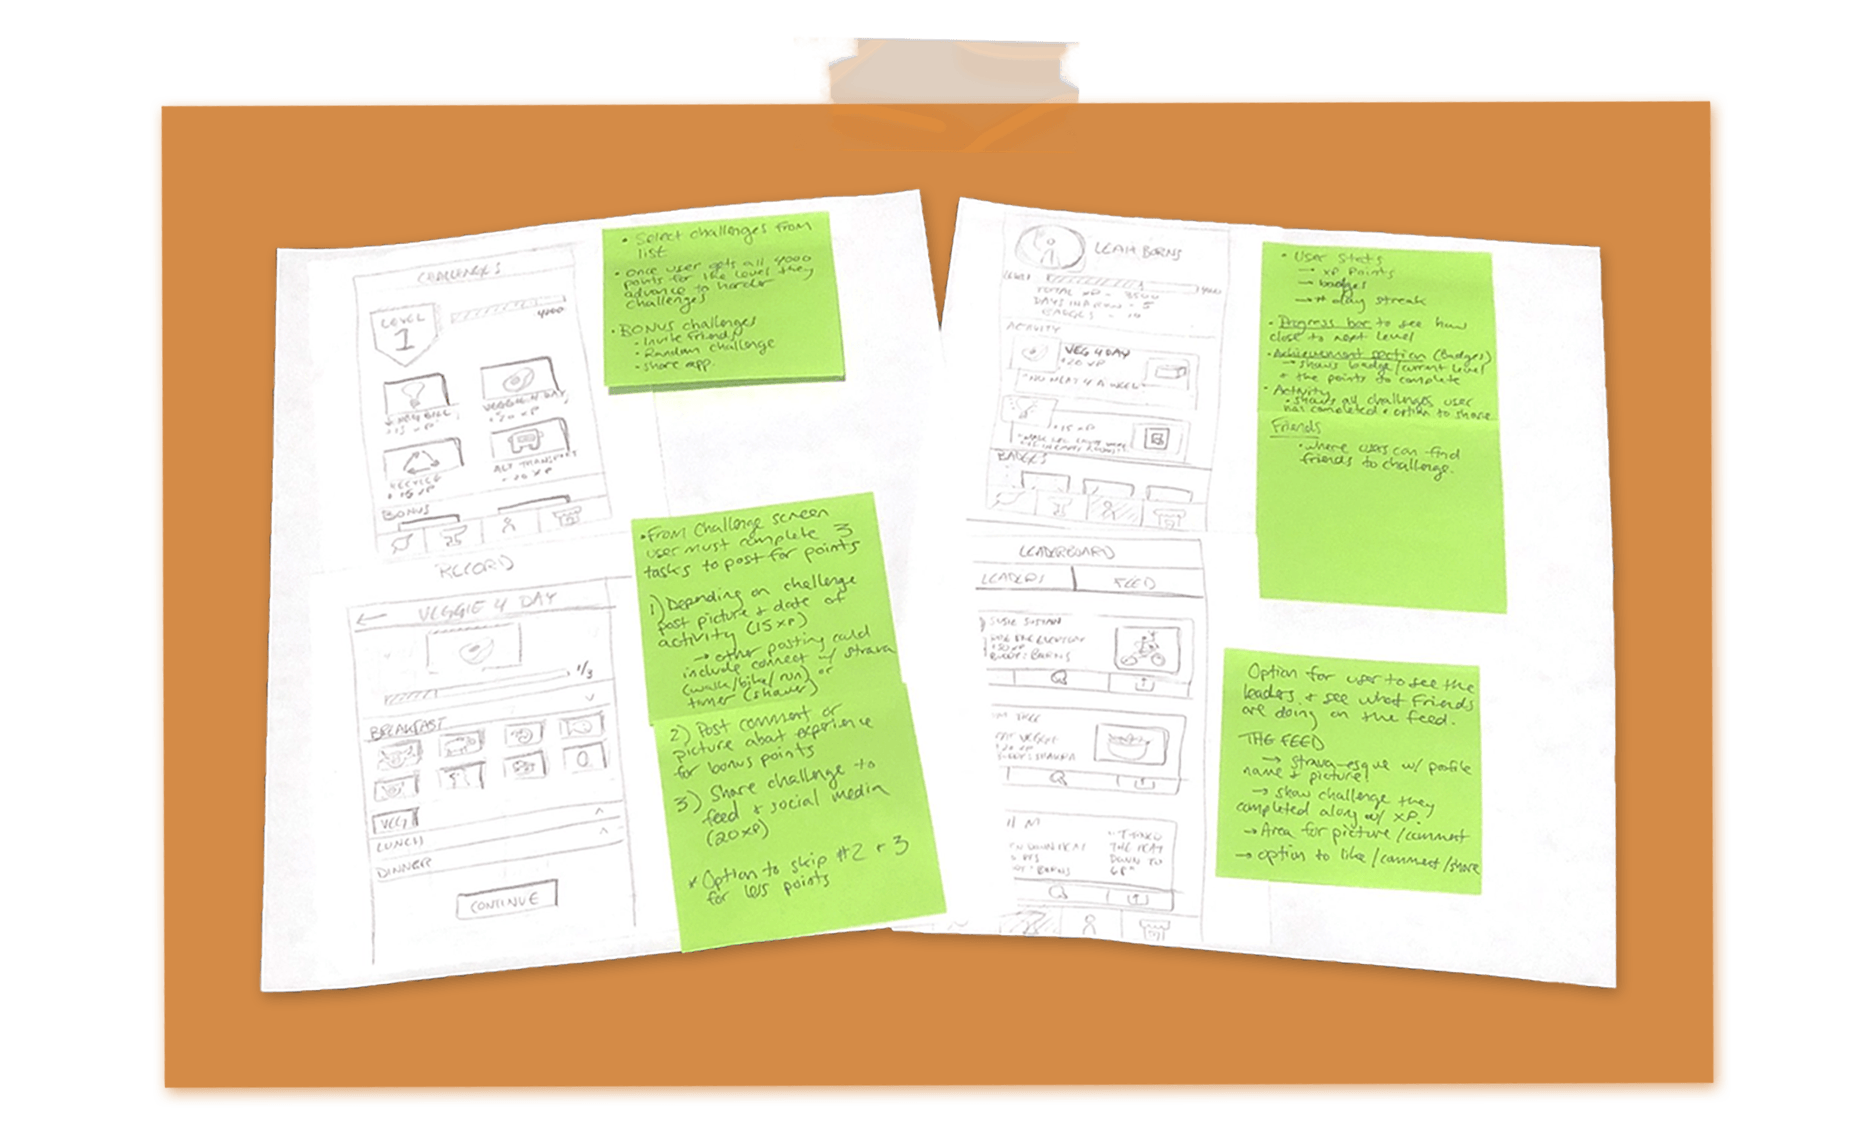 CHALLENGES
LEVEL
1
4000
VEGGIE 4 DAY
RECYCLE
• 15 XP
ALT TRANSPORT
BONUS
• Select challenges from
list
• Once user gets all 4000
points for the level they
advance to harder
challenges
• BONUS challenges
• Invite friends
• Random challenge
• share app.
RECORD
← VEGGIE 4 DAY
1/3
BREAKFAST
VEG
LUNCH
DINNER
CONTINUE
• From Challenge screen
user must complete 3
tasks to post for points
1) Depending on challenge
post picture + date of
activity (15 XP)
→ other posting could
include connect w/ strava
(walk/bike/run) or
timer (shower)
2) Post comment or
picture about experience
for bonus points
3) Share challenge to
feed + social media
(20 XP)
* Option to skip #2 + 3
for less points
LEAH BORNS
LEVEL
4000
TOTAL XP - 3500
DAYS IN A ROW - 5
BADGES -
ACTIVITY
VEG 4 DAY
• 20 XP
"NO MEAT 4 A WEEK"
• 15 XP
BADGES
• User Stats
→ XP Points
→ badges
→ # day streak
• Progress bar to see how
close to next level
• Achievement section (Badges)
→ shows badge/current level
+ the points to complete
• Activity
• shows all challenges user
has completed + option to share
Friends
• where users can find
friends to challenge.
LEADERBOARD
LEADERS FEED
SUSIE
BORNS
VEGGIE
"I TURNED
THE HEAT
DOWN TO
68"
Option for user to see the
leaders + see what friends
are doing on the feed.
THE FEED
→ strava-esque w/ profile
name + picture!
→ show challenge they
completed along w/ XP.
→ Area for picture/comment
→ option to like/comment/share